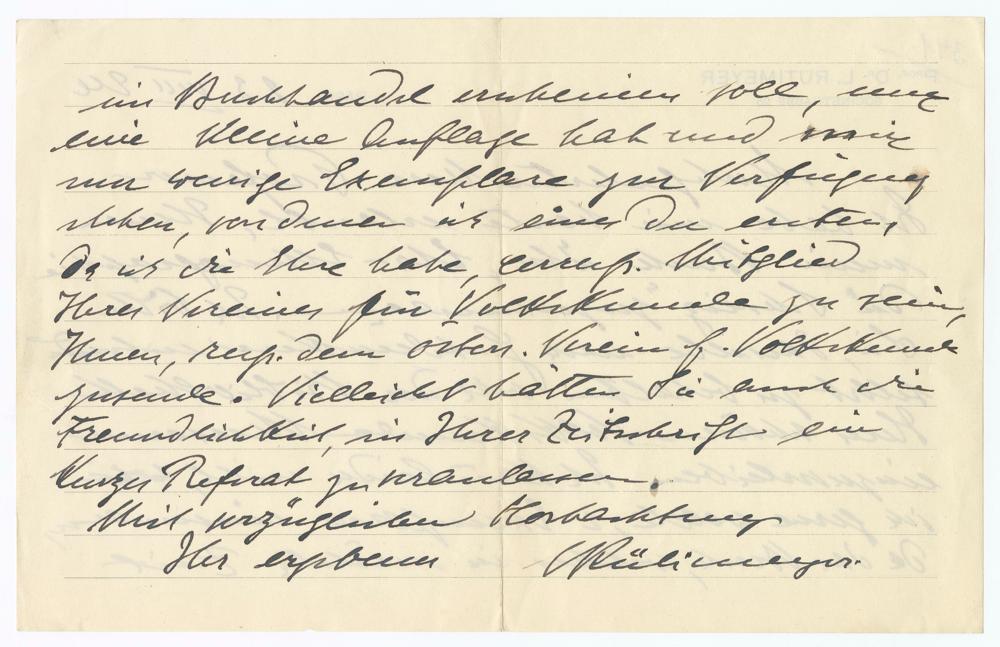 im Buchhandel erscheinen soll, nur
eine kleine Auflage hat und mir
nur wenige Exemplare zur Verfügung
stehen, von denen ich eines der ersten,
da ich die Ehre habe, corresp. Mitglied
Ihres Vereines für Volkskunde zu sein,
Ihnen, resp. dem österr. Verein f. Volkskunde
zusende. Vielleicht hätten Sie auch die
Freundlichkeit, in Ihrer Zeitschrift ein
kurzes Referat zu veranlassen.
Mit vorzüglicher Hochachtung
Ihr ergebener LRütimeyer.
PROF. DR. L. RÜTIMEYER